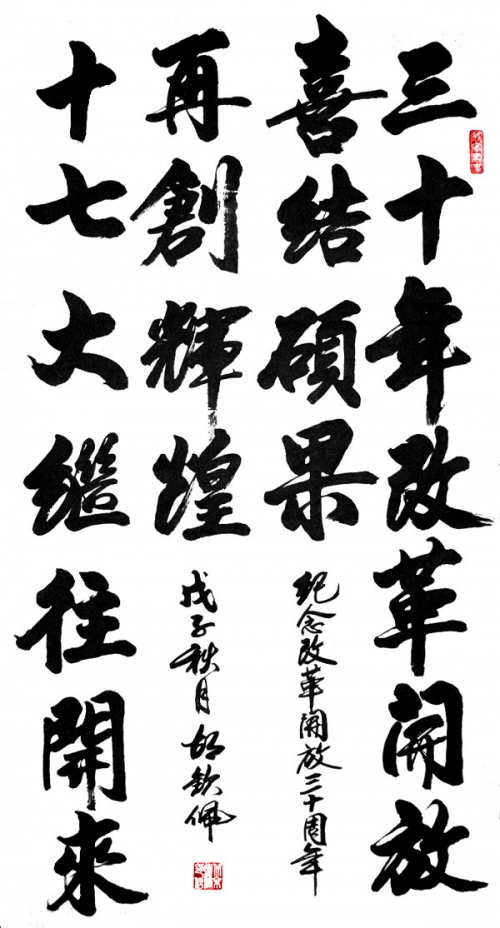 三十年改革開放
喜結碩果
紀念改革開放三十周年
再創輝煌
戊子秋月 胡欽佩
十七大繼往開來